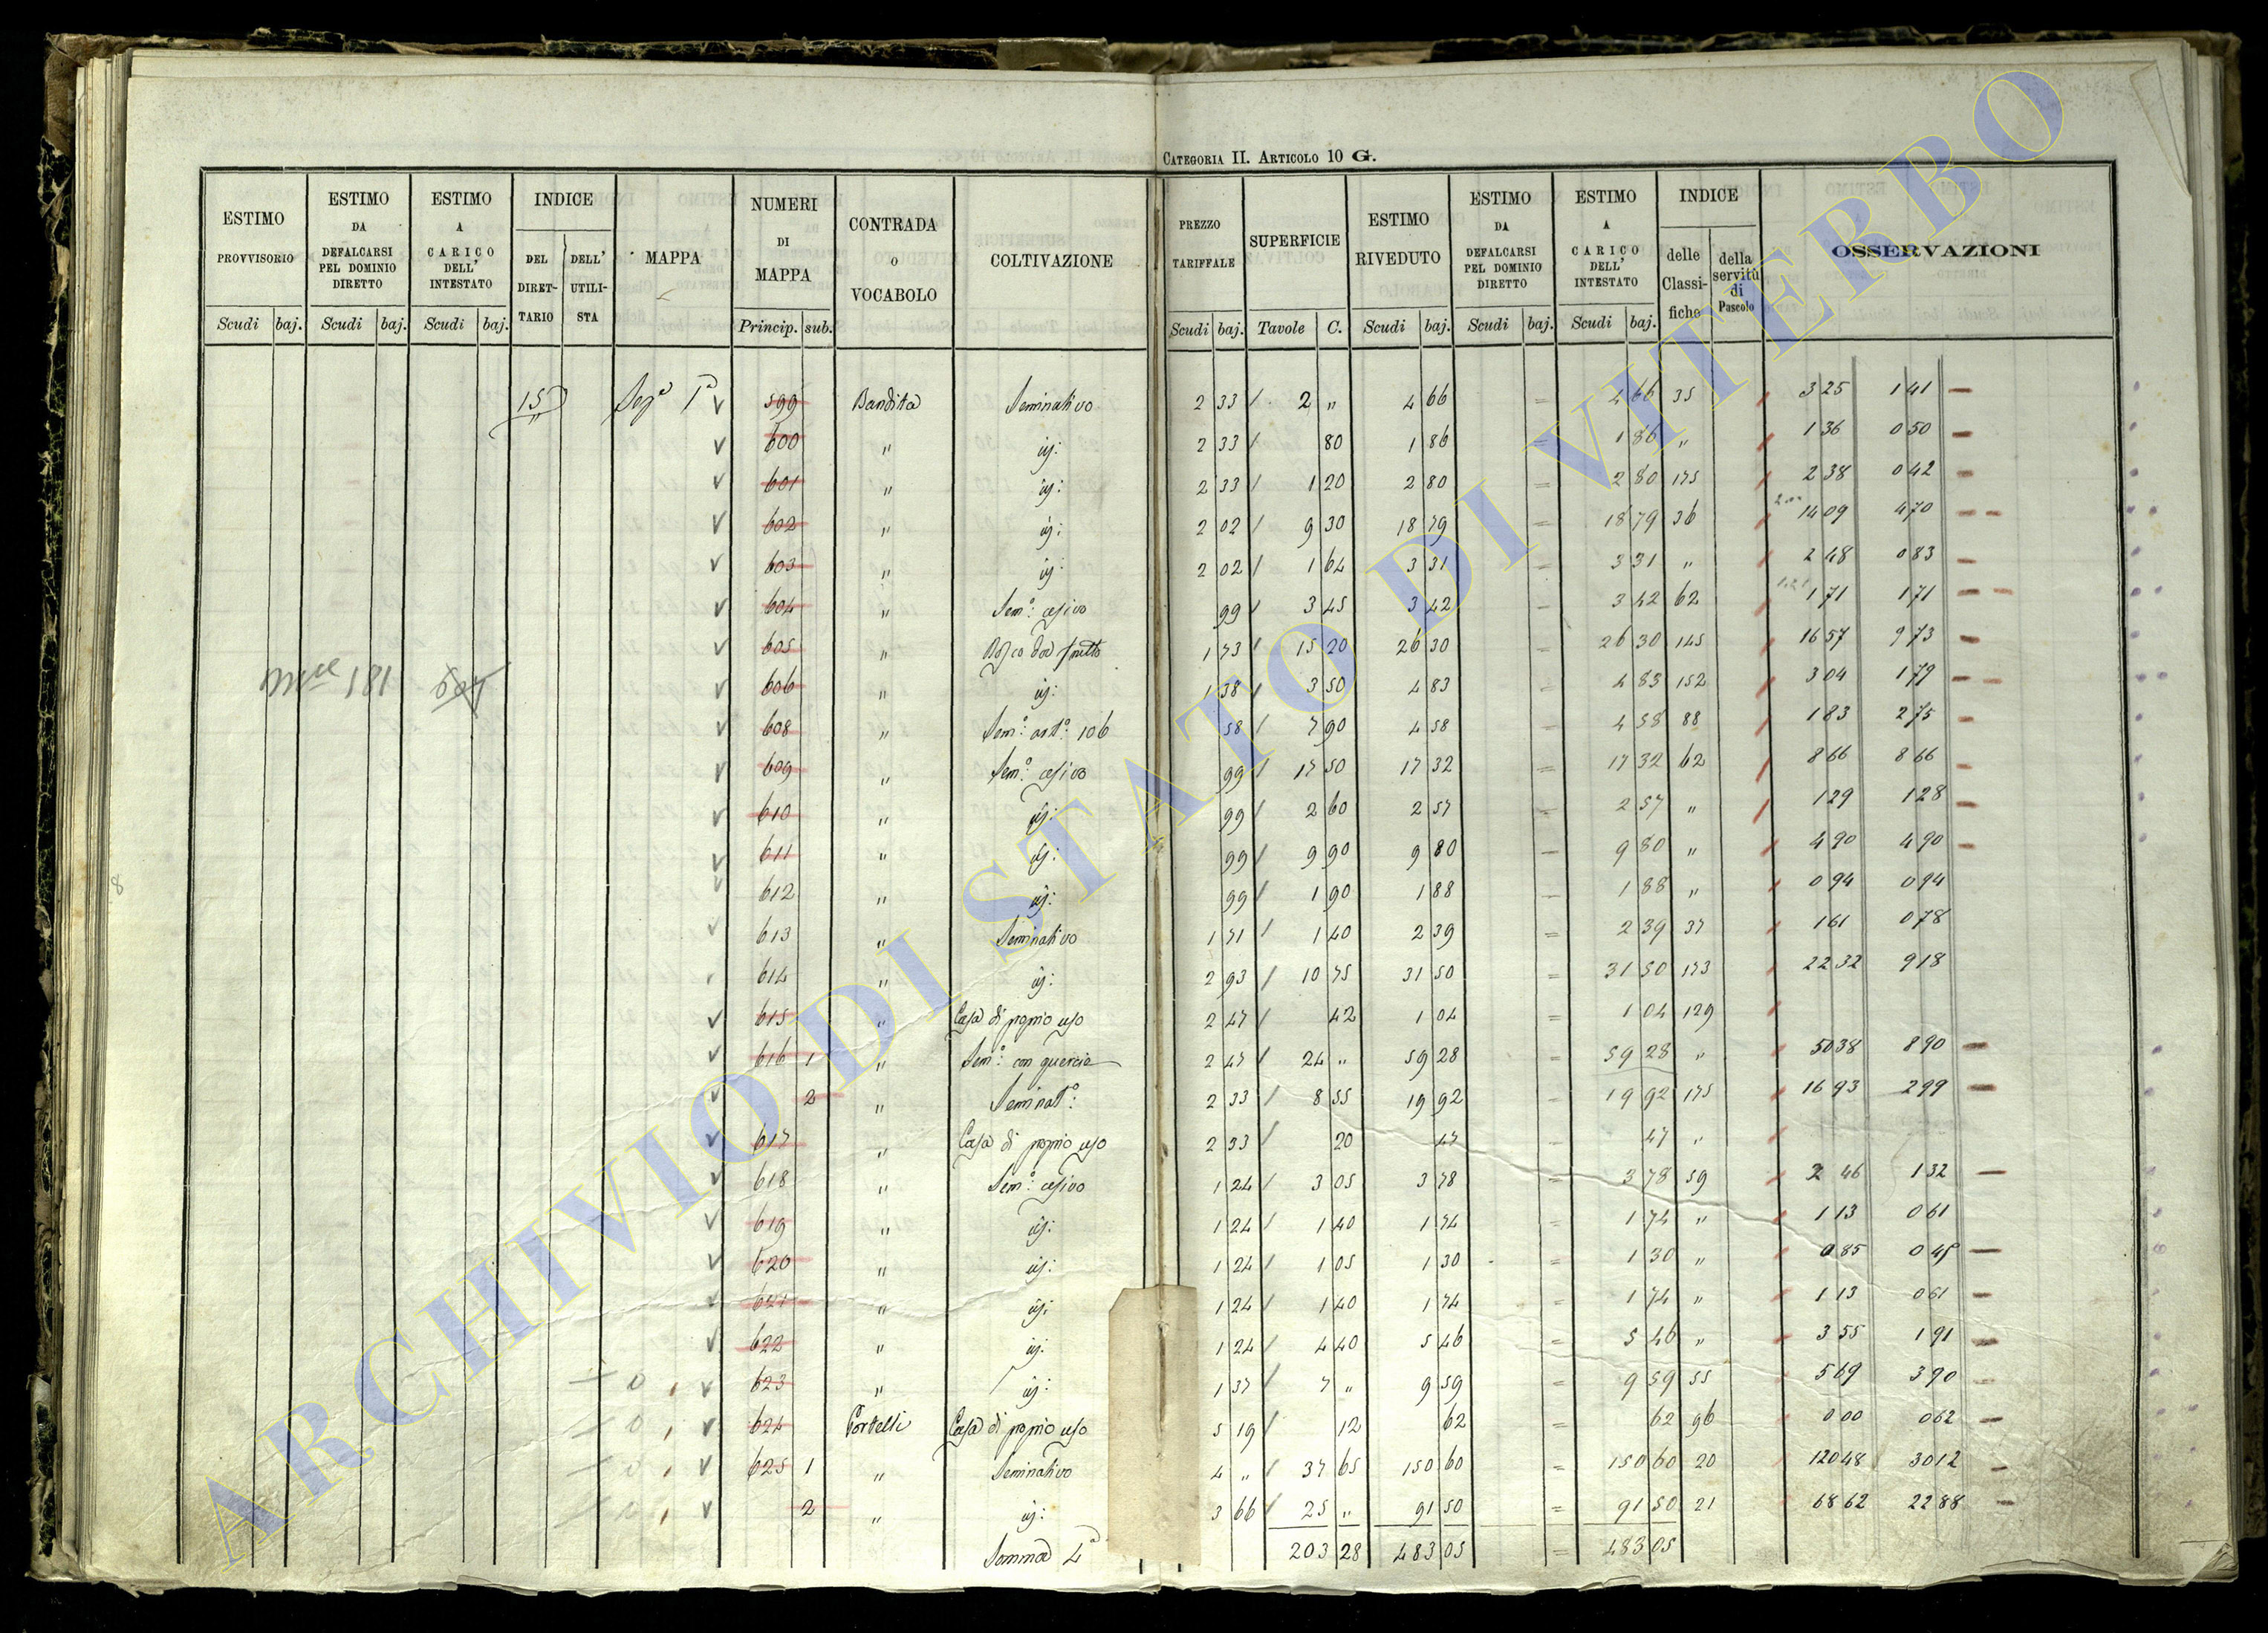 CATEGORIA II. ARTICOLO 10 G.
ESTIMO PROVVISORIO Scudi baj.
ESTIMO DA DEFALCARSI PEL DOMINIO DIRETTO Scudi baj.
ESTIMO A CARICO DELL' INTESTATO Scudi baj.
INDICE DEL DIRETTARIO DELL' UTILISTA
MAPPA
NUMERI DI MAPPA Princip. sub.
CONTRADA O VOCABOLO
COLTIVAZIONE
PREZZO TARIFFALE Scudi baj.
SUPERFICIE Tavole C.
ESTIMO RIVEDUTO Scudi baj.
ESTIMO DA DEFALCARSI PEL DOMINIO DIRETTO Scudi baj.
ESTIMO A CARICO DELL' INTESTATO Scudi baj.
INDICE delle Classifiche della servitù di Pascolo
OSSERVAZIONI
15 Sez.e 1a 599 Bandita Seminativo 2 33 2 " 4 66 = 4 66 35 3 25 1 41
600 " id: 2 33 80 1 86 = 1 86 " 1 36 0 50
601 " id: 2 33 1 20 2 80 = 2 80 175 2 38 0 42
602 " id: 2 02 9 30 18 79 = 18 79 36 14 09 4 70
603 " id: 2 02 1 64 3 31 = 3 31 " 2 48 0 83
604 " Sem.o: cesivo 99 3 45 3 42 = 3 42 62 1 71 1 71
605 " Bosco da frutto 1 73 15 20 26 30 = 26 30 145 16 57 9 73
181
606 " id: 1 38 3 50 4 83 = 4 83 152 3 04 1 79
608 " Sem.o: art.o: 106 58 7 90 4 58 = 4 58 88 1 83 2 75
609 " Sem.o: cesivo 99 17 50 17 32 = 17 32 62 8 66 8 66
610 " id: 99 2 60 2 57 = 2 57 " 1 29 1 28
611 " id: 99 9 90 9 80 = 9 80 " 4 90 4 90
612 " id: 99 1 90 1 88 = 1 88 " 0 94 0 94
613 " Seminativo 1 71 1 40 2 39 = 2 39 37 1 61 0 78
614 " id: 2 93 10 75 31 50 = 31 50 173 22 32 9 18
615 " Casa di proprio uso 2 47 42 1 04 = 1 04 129
616 1 " Sem.o: con quercie 2 47 24 " 59 28 = 59 28 " 50 38 8 90
2 " Seminat.o: 2 33 8 55 19 92 = 19 92 175 16 93 2 99
617 " Casa di proprio uso 2 33 20 47 = 47 "
618 " Sem.o: cesivo 1 24 3 05 3 78 = 3 78 59 2 46 1 32
619 " id: 1 24 1 40 1 74 = 1 74 " 1 13 0 61
620 " id: 1 24 1 05 1 30 = 1 30 " 0 85 0 45
621 " id: 1 24 1 40 1 74 = 1 74 " 1 13 0 61
622 " id: 1 24 4 40 5 46 = 5 46 " 3 55 1 91
623 " id: 1 37 7 " 9 59 = 9 59 55 5 69 3 90
624 Portelli Casa di proprio uso 5 19 12 62 = 62 96 0 00 0 62
625 1 " Seminativo 4 " 37 65 150 60 = 150 60 20 120 48 30 12
2 " id: 3 66 25 " 91 50 = 91 50 21 68 62 22 88
Somma 4a 203 28 483 05 = 483 05
8
ARCHIVIO DI STATO DI VITERBO